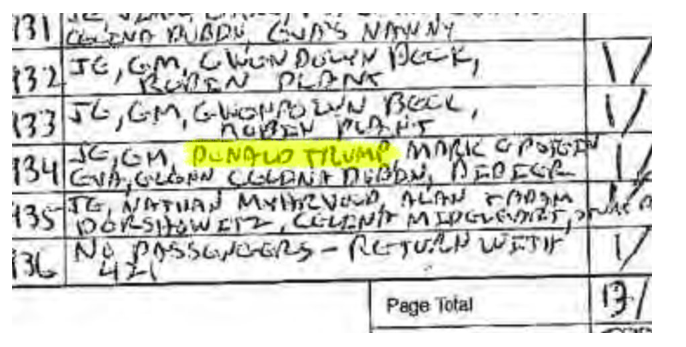 131
CELINA DUBIN, EVA'S NANNY
132 JE, GM, GWENDOLYN BECK, 1/
ROBIN PLANK
133 JE, GM, GWENDOLYN BECK, 1/
ROBIN PLANT
134 JE, GM, DONALD TRUMP, MARK EPSTEIN 1/
EVA, GLENN CELINA DUBIN, DIDIER
135 JE, NATHAN MYHRVOLD, ALAN 1/
DERSHOWITZ, CELINA MIDELFART,
136 NO PASSENGERS - RETURN WITH 1/
421
Page Total 13/